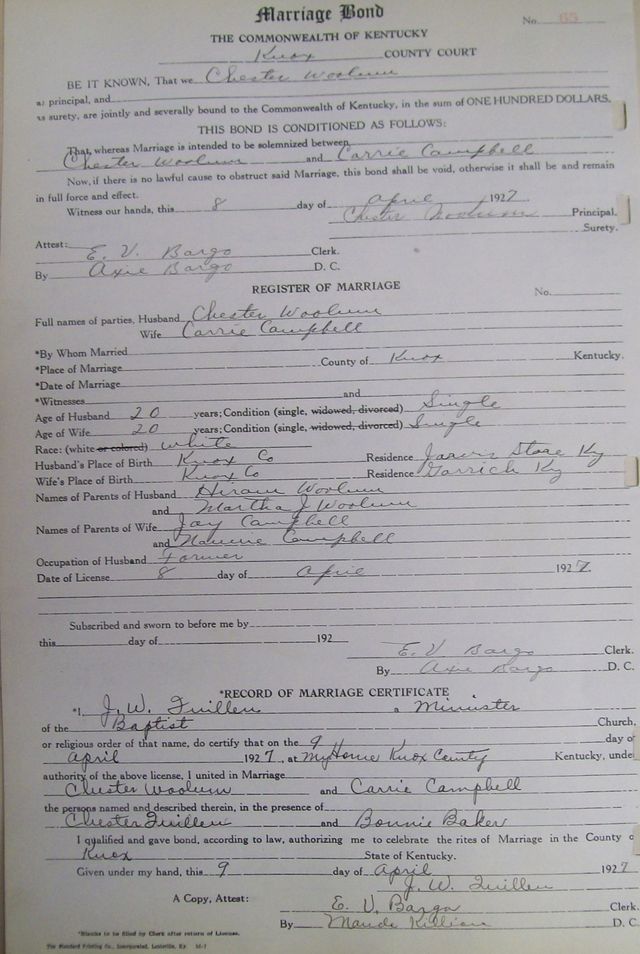 Marriage Bond
No. 65
THE COMMONWEALTH OF KENTUCKY
Knox COUNTY COURT
BE IT KNOWN, That we Chester Woolum
as principal, and
as surety, are jointly and severally bound to the Commonwealth of Kentucky, in the sum of ONE HUNDRED DOLLARS.
THIS BOND IS CONDITIONED AS FOLLOWS:
That, whereas Marriage is intended to be solemnized between
Chester Woolum and Carrie Campbell
Now, if there is no lawful cause to obstruct said Marriage, this bond shall be void, otherwise it shall be and remain
in full force and effect.
Witness our hands, this 8 day of April 1927
Chester Woolum Principal,
Surety.
Attest:
E. V. Bargo Clerk.
By Axie Bargo D. C.
REGISTER OF MARRIAGE
No.
Full names of parties, Husband Chester Woolum
Wife Carrie Campbell
*By Whom Married
*Place of Marriage County of Knox Kentucky.
*Date of Marriage
*Witnesses and
Age of Husband 20 years; Condition (single, widowed, divorced) Single
Age of Wife 20 years; Condition (single, widowed, divorced) Single
Race: (white or colored) White
Husband's Place of Birth Knox Co Residence Jarvis Store Ky
Wife's Place of Birth Knox Co Residence Garrich Ky
Names of Parents of Husband Hiram Woolum
and Martha J Woolum
Names of Parents of Wife Jay Campbell
and Campbell
Occupation of Husband Farmer
Date of License 8 day of April 1927.
Subscribed and sworn to before me by
this day of 192
E. V. Bargo Clerk.
By Axie Bargo D. C.
*RECORD OF MARRIAGE CERTIFICATE
*I, J. W. Guillen a Minister
of the Baptist Church,
or religious order of that name, do certify that on the 9 day of
April 1927, at My Home Knox County Kentucky, under
authority of the above license, I united in Marriage
Chester Woolum and Carrie Campbell
the persons named and described therein, in the presence of
Chester Guillen and Bonnie Baker
I qualified and gave bond, according to law, authorizing me to celebrate the rites of Marriage in the County o
Knox State of Kentucky.
Given under my hand, this 9 day of April 1927
J. W. Guillen
A Copy, Attest:
E. V. Bargo Clerk.
By Maude Killian D. C.
*Blanks to be filed by Clerk after return of License.
The Standard Printing Co., Incorporated, Louisville, Ky